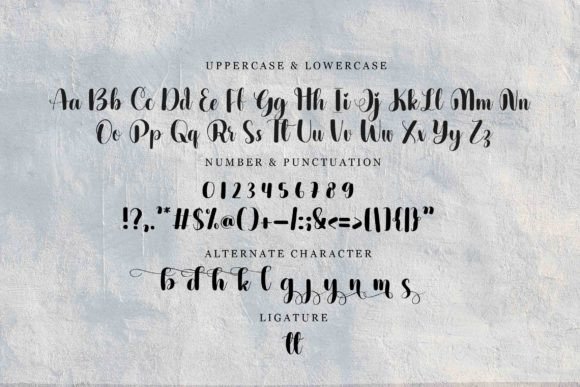 UPPERCASE & LOWERCASE
Aa Bb Cc Dd Ee Ff Gg Hh Ii Jj Kk Ll Mm Nn
Oo Pp Qq Rr Ss Tt Uu Vv Ww Xx Yy Zz
NUMBER & PUNCTUATION
0 1 2 3 4 5 6 7 8 9
!?,."*#$%@()+-/:;&<=>[\]{|}"
ALTERNATE CHARACTER
b d h k l g j y n m s
LIGATURE
tt